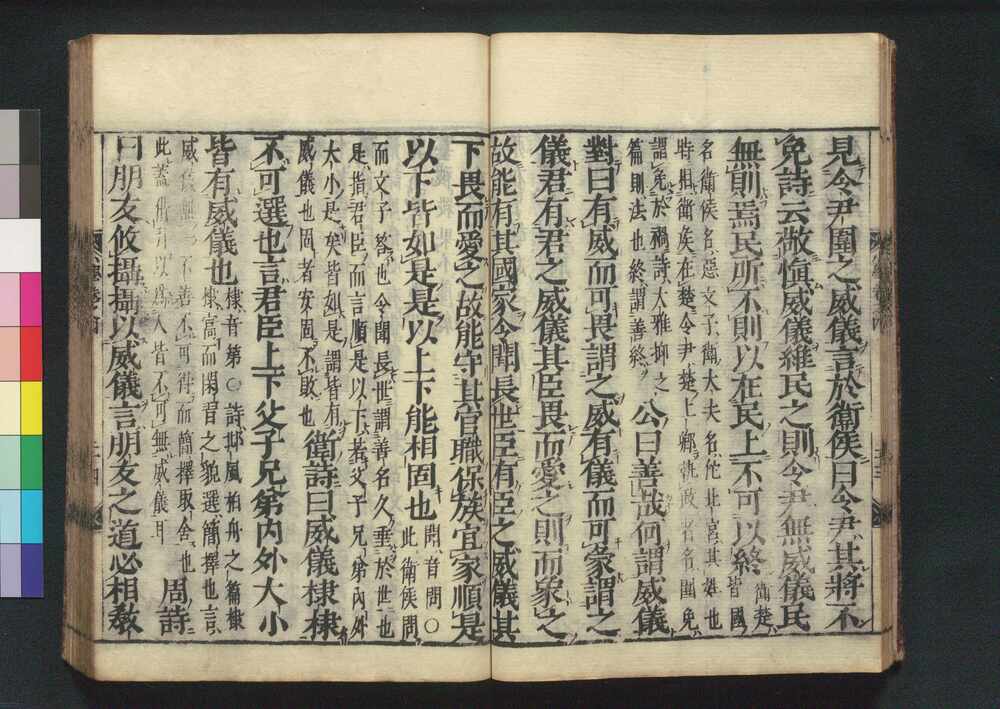 見令尹圍之威儀言於衛侯曰令尹其將不
免詩云敬愼威儀維民之則令尹無威儀民
無則焉民所不則以在民上不可以終
衛楚
皆國
名衛侯名惡文子衛大夫名佗北宮其姓也
時相衛侯在楚令尹楚上卿執政者名圍免
謂免於禍詩大雅抑之
篇則法也終謂善終
公曰善哉何謂威儀
對曰有威而可畏謂之威有儀而可象謂之
儀君有君之威儀其臣畏而愛之則而象之
故能有其國家令聞長世臣有臣之威儀其
下畏而愛之故能守其官職保族宜家順是
以下皆如是是以上下能相固也
聞音問○
此衛侯問
而文子答也令聞長世謂善名久垂於世也
是指君臣而言順是以下若父子兄弟內外
大小是矣皆如是謂皆有
威儀也固者安固不敗也
衛詩曰威儀棣棣
不可選也言君臣上下父子兄弟內外大小
皆有威儀也
棣音第○詩邶風柏舟之篇棣
棣富而閑習之貌選簡擇也言
威儀無一不善不可得而簡擇取舍也
此蓋借引以爲人皆不可無威儀耳
周詩
曰朋友攸攝攝以威儀言朋友之道必相敎